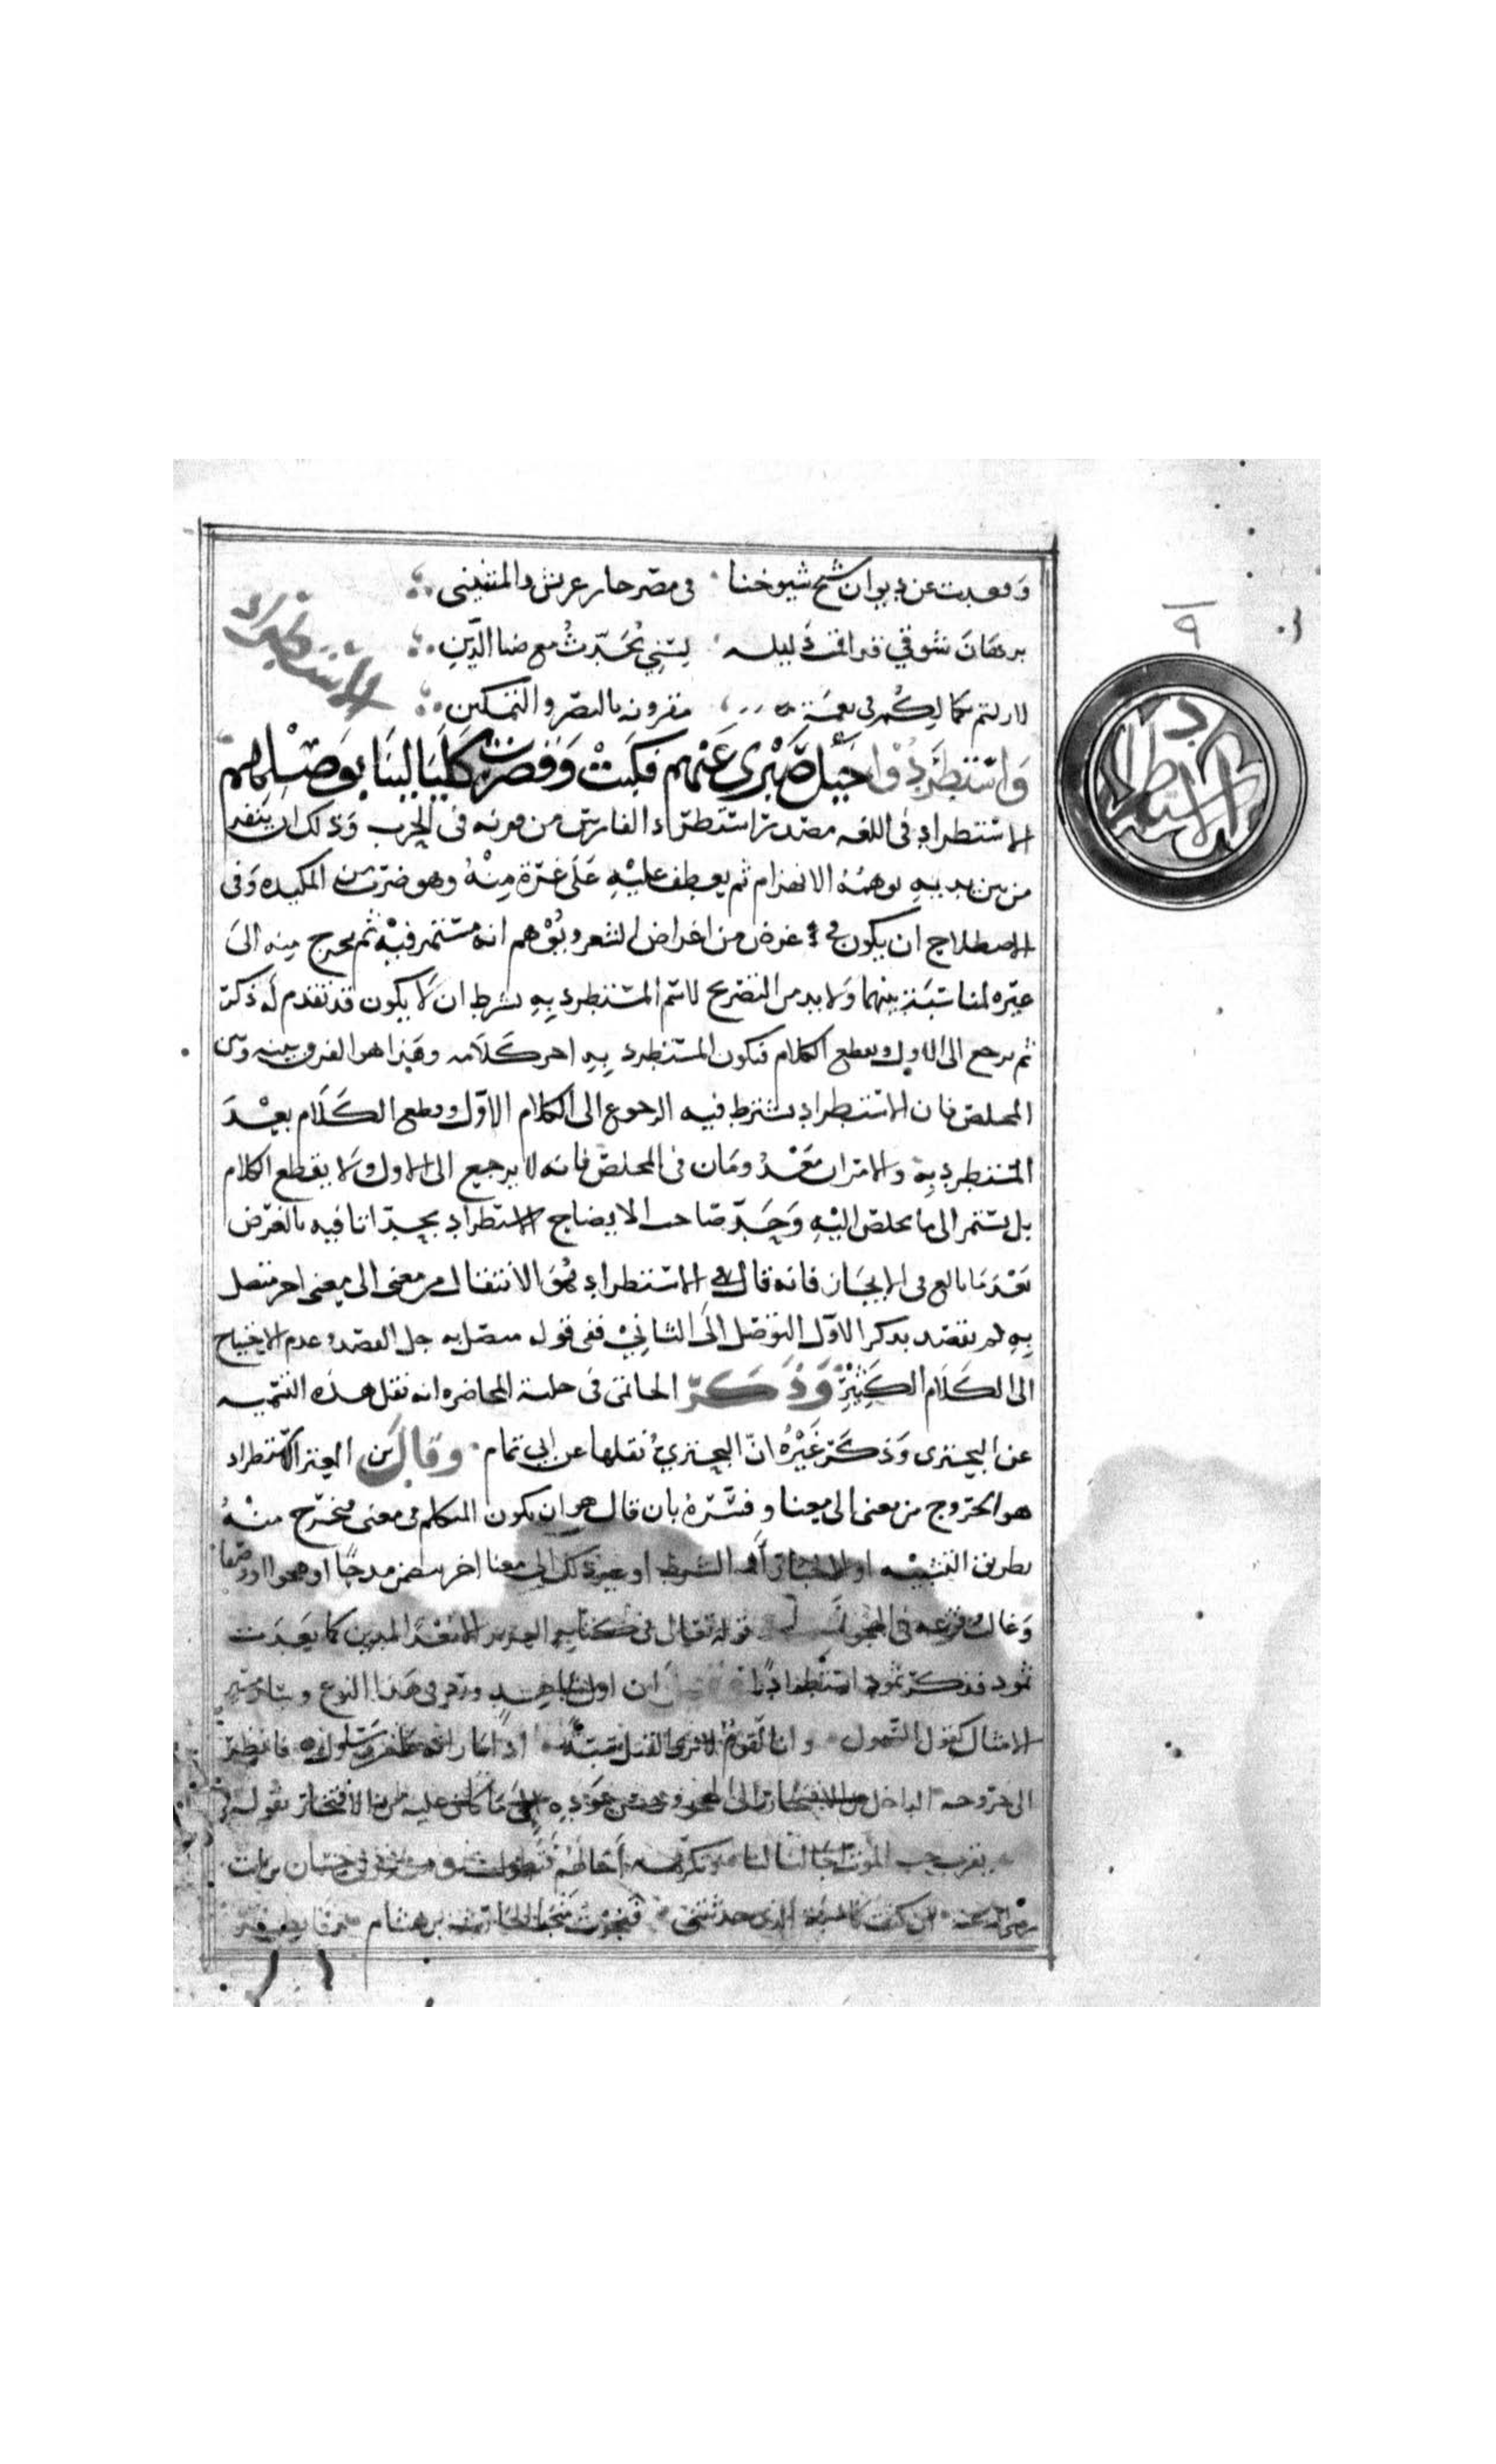 وقعدت عن ديوان شيخ شيوخنا في مصر حار عريش والمتنبي
برهان شوقي قد اقمت دليله ليتني تحدث مع ضيا الدين
لا زلتم كمالكم في نعمة مقرونه بالنصر والتمكين
الاستطراد
الاستطراد
واستطردوا خيل صبري عنهم فكبت وقصرت كليالينا بوصلهم
الاستطراد في اللغه مصدر استطراد الفارس من قرنه في الحرب وذلك ان يفر
من بين يديه يوهمه الانهزام ثم يعطف عليه على غرة منه وهو ضرب من المكيده وفى
الاصطلاح ان يكون في غرض من اغراض الشعر ويوهم انه مستمر فيه ثم يخرج منه الى
غيره لمناسبة بينهما ولا بد من التصريح لاسم المستطرد به بشرط ان لا يكون قد تقدم له ذكر
ثم يرجع الى الاول ويقطع الكلام فيكون المستطرد به اخر كلامه وهذا هو الفرق بينه وبين
المخلص فان الاستطراد يشترط فيه الرجوع الى الكلام الاول وقطع الكلام بعد
المستطرد به والامران معدومان في المخلص فانه لا يرجع الى الاول ولا يقطع الكلام
بل يستمر الى ما يخلص اليه وحد صاحب الايضاح الاستطراد بحد اتا فيه بالغرض
بعد ما بالغ في الايجاز فانه قال الاستطراد هو الانتقال من معنى الى معنى اخر متصل
به لم يقصد بذكر الاول التوصل الى الثاني ففى قوله متصل به جل القصد وعدم الاحتياج
الى الكلام الكثير وذكر الحاتمى فى حلية المحاضره انه نقل هذه التسميه
عن البحتري وذكر غيره ان البحتري نقلها عن ابي تمام وقال بن المعتز الاستطراد
هو الخروج من معنى الى معنا وفسره بان قال هو ان يكون المتكلم في معنى فيخرج منه
بطريق التشبيه او الاخبار او الشرط او غير ذلك الى معنا اخر يتضمن مدحا او هجوا او وصفا
وغالب وقوعه في الهجو قوله تعالى في كتابه العزيز الا بعدا لمدين كما بعدت
ثمود فذكر ثمود استطراد ان اول شاهد ورد في هذا النوع وسار مسير
الامثال كقول السموأل وانا لقوم لا نرى القتل سبة اذا ما راته عامر وسلول فانظر
الى خروجه الداخل من الافتخار الى الهجو وحسن عوده الى ما كان عليه من الافتخار بقوله
يقرب حب الموت اجالنا لنا وتكرهه اجالهم فتطول حسان بن ثابت
رضى الله عنه ان كنت كاذبة الذى حدثتني فنجوت منجا الحارث بن هشام